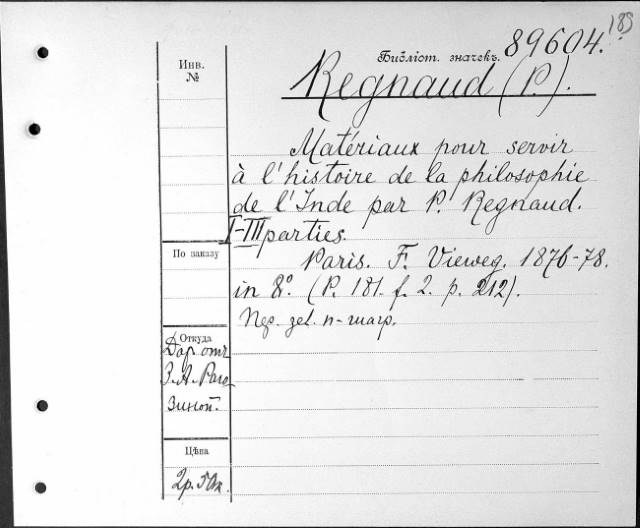 189
Библіот. значекъ. 89604.
Инв. №
Regnaud (P.).
Matériaux pour servir
à l'histoire de la philosophie
de l'Inde par P. Regnaud.
I-III parties.
Paris. F. Vieweg. 1876-78.
in 8º. (P. 181. f. 2. p. 212).
По заказу
Откуда
Дар отъ
З. А. Раго
зиной.
Цѣна
2р. 50к.